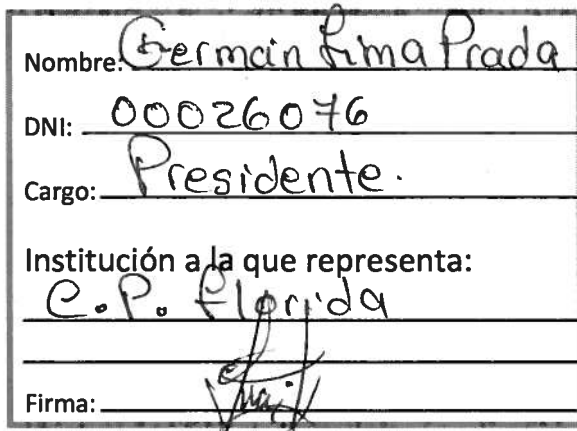 Nombre: German Lima Prada
DNI: 00026076
Cargo: Presidente.
Institución a la que representa:
C.P. Florida
Firma: